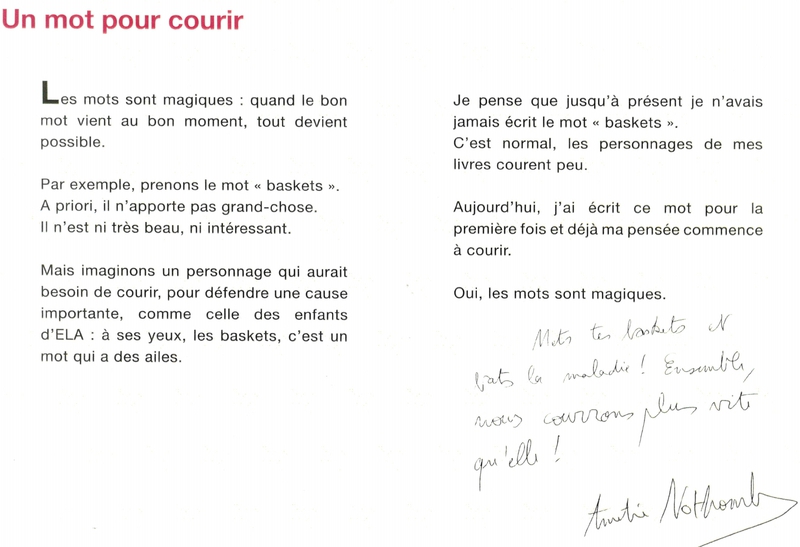 Un mot pour courir
Les mots sont magiques : quand le bon
mot vient au bon moment, tout devient
possible.
Par exemple, prenons le mot « baskets ».
A priori, il n'apporte pas grand-chose.
Il n'est ni très beau, ni intéressant.
Mais imaginons un personnage qui aurait
besoin de courir, pour défendre une cause
importante, comme celle des enfants
d'ELA : à ses yeux, les baskets, c'est un
mot qui a des ailes.
Je pense que jusqu'à présent je n'avais
jamais écrit le mot « baskets ».
C'est normal, les personnages de mes
livres courent peu.
Aujourd'hui, j'ai écrit ce mot pour la
première fois et déjà ma pensée commence
à courir.
Oui, les mots sont magiques.
Mets tes baskets et
bats la maladie ! Ensemble,
nous courrons plus vite
qu'elle !
Amélie Nothomb